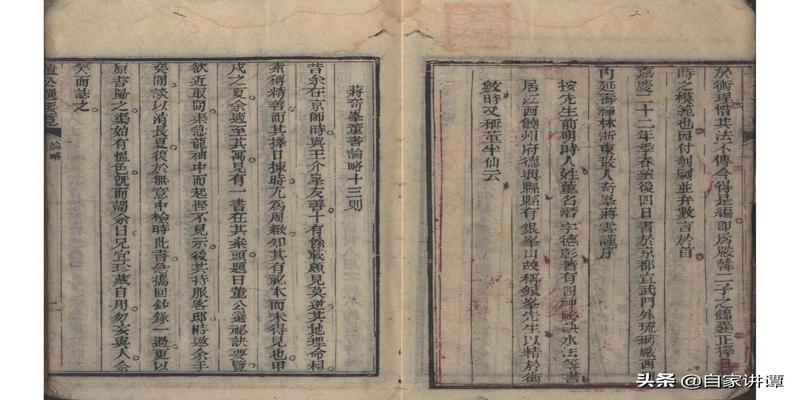 於術理惜其法不傳今得是編即為嚴韓二子之錦囊正擇日
時之模範也因付剞劂並弁數言於首
嘉慶二十二年季春望後四日書於京都宣武門外琉璃廠西
內延壽禪林浙東散人奇峯蔣雲謹序
按先生前明時人姓董名潛字德彰著有四神秘訣水法等書
居江西饒州府德興縣縣有銀峯山故稱銀峯先生以精於術
數時又稱董半仙云
蔣奇峯董書論略十三則
昔余在京師時與王介峯友善十有餘載頗見莫逆其地理命相
素稱精善而其擇日揀時尤為周緻知其有祕本而未得見也甲
戌之夏余適至其寓見有一書在其案頭題曰董公選祕訣要覽
欲近取閱渠急龍袖中而起慳不見示後其持服客邸時邀余手
奕閒談以消長夏後於無意中檢時此書急攜回鈔錄一過更以
原書歸之渠始有慍色既而謂余曰兄宜珍藏自用勿妄與人僉
笑而誌之
論略
頭条 @自家讲谭